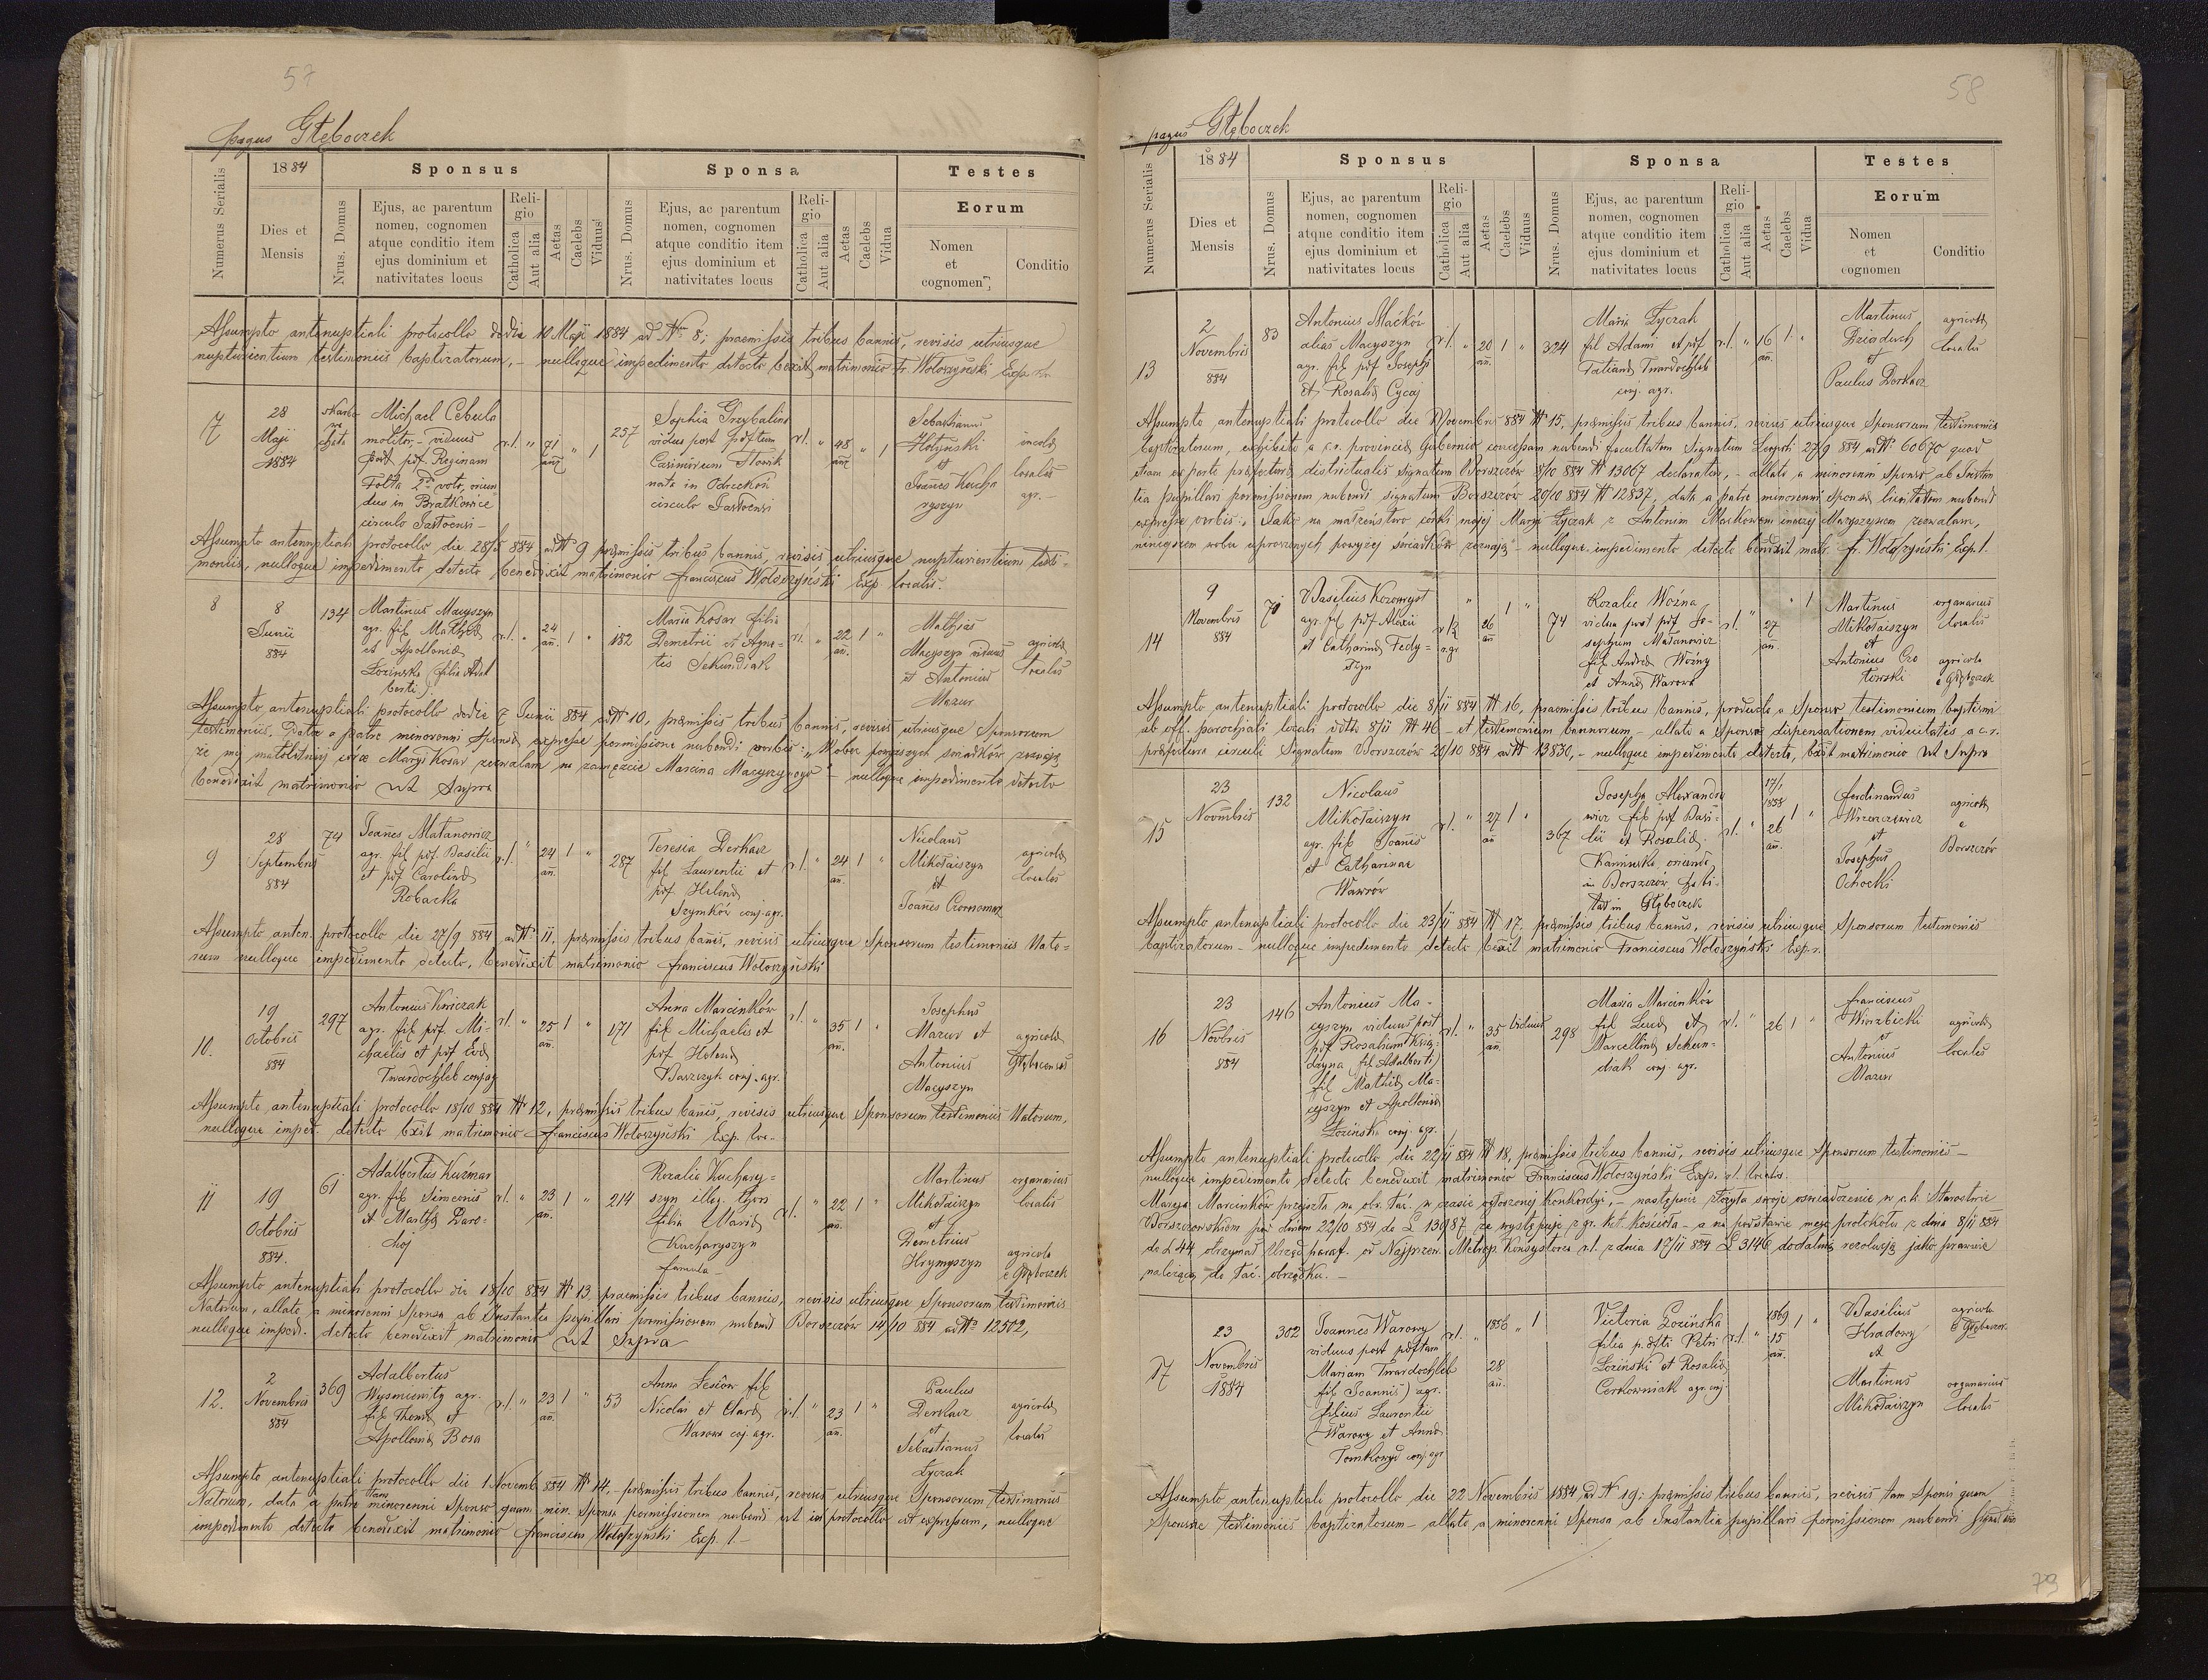 57
pagus Głęboczek
1884
Sponsus
Sponsa
Testes
Numerus Serialis
Dies et Mensis
Nrus. Domus
Ejus, ac parentum
nomen, cognomen
atque conditio item
ejus dominium et
nativitates locus
Religio
Catholica
Aut alia
Aetas
Caelebs
Viduus
Nrus. Domus
Ejus, ac parentum
nomen, cognomen
atque conditio item
ejus dominium et
nativitates locus
Religio
Catholica
Aut alia
Aetas
Caelebs
Vidua
Eorum
Nomen
et
cognomen
Conditio
Assumpto antenuptiali protocollo de die 10 Maji 1884 ad Nr 8; praemissis tribus bannis, revisis utriusque
nupturientium testimoniis baptizatorum, - nulloque impedimento detecto bexit matrimonio Fr Wołoszyński Exp.
7
28
Maji
1884
Michael Cebula
molitor, - viduus
post pdf. Reginam
Folta 2do voto, oriun
dus in Bratkowice
circulo
r.l. " 71 " 1
257
Sophia Grzybalina
vidua post pdftum
Casimirum
nata in
circulo
r.l. " 48 " 1
Sebastianus
Hołyński
et
Joannes Kucha
ryszyn
incolae
locales
agr. -
Assumpto antenuptiali protocollo die 28/5 884 ad N 9 praemissis tribus bannis, revisis utriusque nupturientium testi-
moniis, nulloque impedimento detecto benedixit matrimonio Franciscus Wołoszyński Exp. localis.
8
8
Junii
884
134
Martinus Macyszyn
agr. fil Mathiae
et Apolloniae
Łozinska (filia Adal
berti).
r.l. " 24 an. 1 "
182
Maria Kosar filia
Demetrii et Agne-
tis Sekundiak
r.l. " 22 an. 1 "
Mathias
Macyszyn viduus
et Antonius
Mazur
agricolae
locales
Assumpto antenuptiali protocollo de die 7 Junii 884 ad N 10, praemissis tribus bannis, revisis utriusque Sponsorum
testimoniis. Data a patre minorenni sponsae expresse permissione nubendi verbis: "W obec powyższych swiadków zeznaję
że mej małoletniej córce Maryi Kosar zezwalam na zamęzcie Marcina Macyszynego" - nulloque impedimento detecto
benedixit matrimonio ut Supra
9
28
Septembris
884
74
Joannes Matanowicz
agr. fil pdf. Basilii
et pdf Carolinae
Robacka
r.l. " 24 an. 1 "
287
Teresia Derkacz
fil. Laurentii et
pdf. Helenae
Szymków conj. agr.
r.l. " 24 an. 1 "
Nicolaus
Mikołaiszyn
et
Joannes Czornomaz
agricolae
locales
Assumpto anten. protocollo die 27/9 884 ad N 11. praemissis tribus bannis, revisis utriusque Sponsorum testimoniis Nato-
rum nulloque impedimento detecto, benedixit matrimonio Franciscus Wołoszyński
10.
19
Octobris
884
297
Antonius Kwiczak
agr. fil pdf. Mi-
chaelis et pdf Evae
Twardochleb conj ag
r.l. " 25 an. 1 "
171
Anna Marcinków
fil Michaelis et
pdf. Helenae
Barszczyk conj. agr.
r.l. " 35 an. 1 "
Josephus
Mazur et
Antonius
Macyszyn
agricolae
Assumpto antenuptiali protocollo 18/10 884 N 12, praemissis tribus banis, revisis utriusque Sponsorum testimoniis Natorum,
nulloque imped. detecto bxit matrimonio Franciscus Wołoszyński Exp. loc.
11
19
Octobris
884.
61
Adalbertus Kuśmar
agr. fil Simeonis
et Marthae
r.l. " 23 an. 1 "
214
Rozalia Kuchary-
szyn illeg. thori
filia Mariae
Kucharyszyn
famula
r.l. " 22 an. 1 "
Martinus
Mikołaiszyn
et
Demetrius
Hrymyszyn
organarius
localis
agricola
e Głęboczek
Assumpto antenuptiali protocollo die 18/10 884 N 13. praemissis tribus bannis, revisis utriusque Sponsorum testimoniis
Natorum, allato a minorenni Sponsa ab Instantia pupillari permissionem nubendi Borszczów 14/10 884 ad N 12502,
nulloque imped. detecto benedixit matrimonio ut Supra
12.
2
Novembris
884
369
Adalbertus
agr.
fil. Thomae et
Apolloniae Bosa
r.l. " 23 an. 1 "
53
Anna Lesiów fil
Nicolai et Clarae
Warowa coj. agr.
r.l. " 23 an. 1 "
Paulus
Derkacz
et
Sebastianus
Łyczak
agricolae
locales
Assumpto antenuptiali protocollo die 1 Novemb 884 N 14. - praemissis tribus bannis, revisis utriusque Sponsorum testimoniis
Natorum, data a patre tam minorenni Sponso quam min. Sponsa permissionem nubendi ut in protocollo est expressum, nulloque
impedimento detecto benedixit matrimonio Franciscus Wołoszyński Exp. l. -
58
pagus Głęboczek
1884
Sponsus
Sponsa
Testes
Numerus Serialis
Dies et
Mensis
Nrus. Domus
Ejus, ac parentum
nomen, cognomen
atque conditio item
ejus dominium et
nativitates locus
Religio
Catholica
Aut alia
Aetas
Caelebs
Viduus
Nrus. Domus
Ejus, ac parentum
nomen, cognomen
atque conditio item
ejus dominium et
nativitates locus
Religio
Catholica
Aut alia
Aetas
Caelebs
Vidua
Eorum
Nomen
et
cognomen
Conditio
13
2
Novembris
884
83
Antonius Maćków
alias Macyszyn
agr. fil pdf Josephi
et Rosaliae Cycaj
r.l. " 20 an. 1 "
324
Maria Łyczak
fil Adami et pdf
Tatianae Twardochleb
conj. agr.
r.l. " 16 an. 1 "
Martinus
Dziaduch
et
Paulus Derkacz
agricolae
locales
Assumpto antenuptiali protocollo die Novembris 884 N 15, praemissis tribus bannis, revisis utriusque Sponsorum testimoniis
baptizatorum, exhibita a c.r. provinciae Gubernio concessam nubendi facultatem Signatum Leopoli 27/9 884 ad N. 60670 quod
etiam ex parte praefecturae districtualis signatum Borszczów 8/10 884 N 13067 declaratur, - allato a minorenni Sponso ab Instan
tia pupillari permissionem nubendi signatum Borszczów 20/10 884 N 12837, data a patre minorenni Sponsae licentiam nubendi
expresse verbis: "Jako na małżeństwo córki mojej Maryi Łyczak z Antonim Maćkowem inaczej Macyszynem zezwalam,
niniejszem wobec uproszonych powyżej świadków zeznaję" - nulloque impedimento detecto benedixit matr. fr. Wołoszyński Exp l.
14
9
Novembris
884
70
Basilius
agr. fil pdf Alexii
et Catharinae Fedy-
szyn
26 an 1 "
74
Rozalia Woźna
vidua post pdf Jo-
sephum Matanowicz
fil. Andreae Woźny
et Annae Warowa
r.l. " 27 an. " 1
Martinus
Mikołaiszyn
et
Antonius Czo
towski
organarius
localis
agricola
e Głęboczek
Assumpto antenuptiali protocollo die 8/11 884 N 16, praemissis tribus bannis, producto a Sponso testimonium baptismi
ab off. parochiali locali ddto 8/11 N 46 - et testimonium bannorum, - allato a Sponsa dispensationem viduitatis a c.r.
praefectura circuli Signatum Borszczów 20/10 884 ad N 13830, - nulloque impedimento detecto, bxit matrimonio ut Supra
15
23
Novmbris
132
Nicolaus
Mikołaiszyn
agr. fil Joannis
et Catharinae
Wawrów
r.l. " 27 an 1 "
367
Josepha Alexandro
wicz fil pdf Basi-
lii et Rosaliae
Kaminska oriunda
in Borszczów habi-
tas in Głęboczek
r.l. " 17/1 1858 26 an. 1 "
Ferdinandus
et
Josephus
Ochocki
agricolae
e
Borszczów
Assumpto antenuptiali protocollo die 23/11 884 N 17, praemissis tribus bannis, revisis utriusque Sponsorum testimoniis
baptizatorum - nulloque impedimento detecto bexit matrimonio Franciscus Wołoszyński Exp. r.
16
23
Novbris
884
146
Antonius Ma-
cyszyn viduus post
pdf Rosaliam
(fil Adalberti)
fil Mathiae Ma-
cyszyn et Apolloniae
Łozińska conj. agr.
r.l. " 35 an. viduus
298
Maria Marcinków
fil. Lucae et
Marcellinae Sekun-
diak conj. agr.
r.l. " 26 1 "
Franciscus
Wirzbicki
et
Antonius
Mazur
agricolae
locales
Assumpto antenuptiali protocollo die 22/11 884 N 18, praemissis tribus bannis, revisis utriusque Sponsorum testimoniis -
nulloque impedimento detecto benedixit matrimonio Franciscus Wołoszyński Exp. r.l. localis.
Marya Marcinków przeszła na obr. łać. w czasie ogłoszonej konkordyi, - następnie złożyła swoje oświadczenie w c.k. Starostwie
Borszczowskiem pod dniem 22/10 884 do L 13987 że występuje z gr. kat. kościoła - a na podstawie mego protokołu z dnia 8/11 884
do L 44 otrzymał Urząd paraf. od Najprzew. Metrop. Konsystorza r.l. z dnia 17/11 884 L 3146 dodatnią rezolucję jako prawnie
należącą do łać. obrządku. -
17
23
Novembris
1884
302
Joannes Warowy
viduus post pdftam
Mariam Twardochleb
fil Joannis) agr.
filius Laurentii
Warowy et Annae
conj. agr
r.l. " 1856 28 an. " 1
Victoria Łozińska
filia p. dfti Petri
Łoziński et Rosaliae
Cerkowniak agr. conj.
r.l. " 1869 15 an. 1 "
Basilius
Hradowy
et
Martinus
Mikołaiszyn
agricola
e Głęboczek
organarius
localis
Assumpto antenuptiali protocollo die 22 Novembris 1884 ad N 19; praemissis tribus bannis, revisis tam Sponsi quam
Sponsae testimoniis baptizatorum - allato a minorenni Sponsa ab Instantia pupillari permissionem nubendi Signatum
79